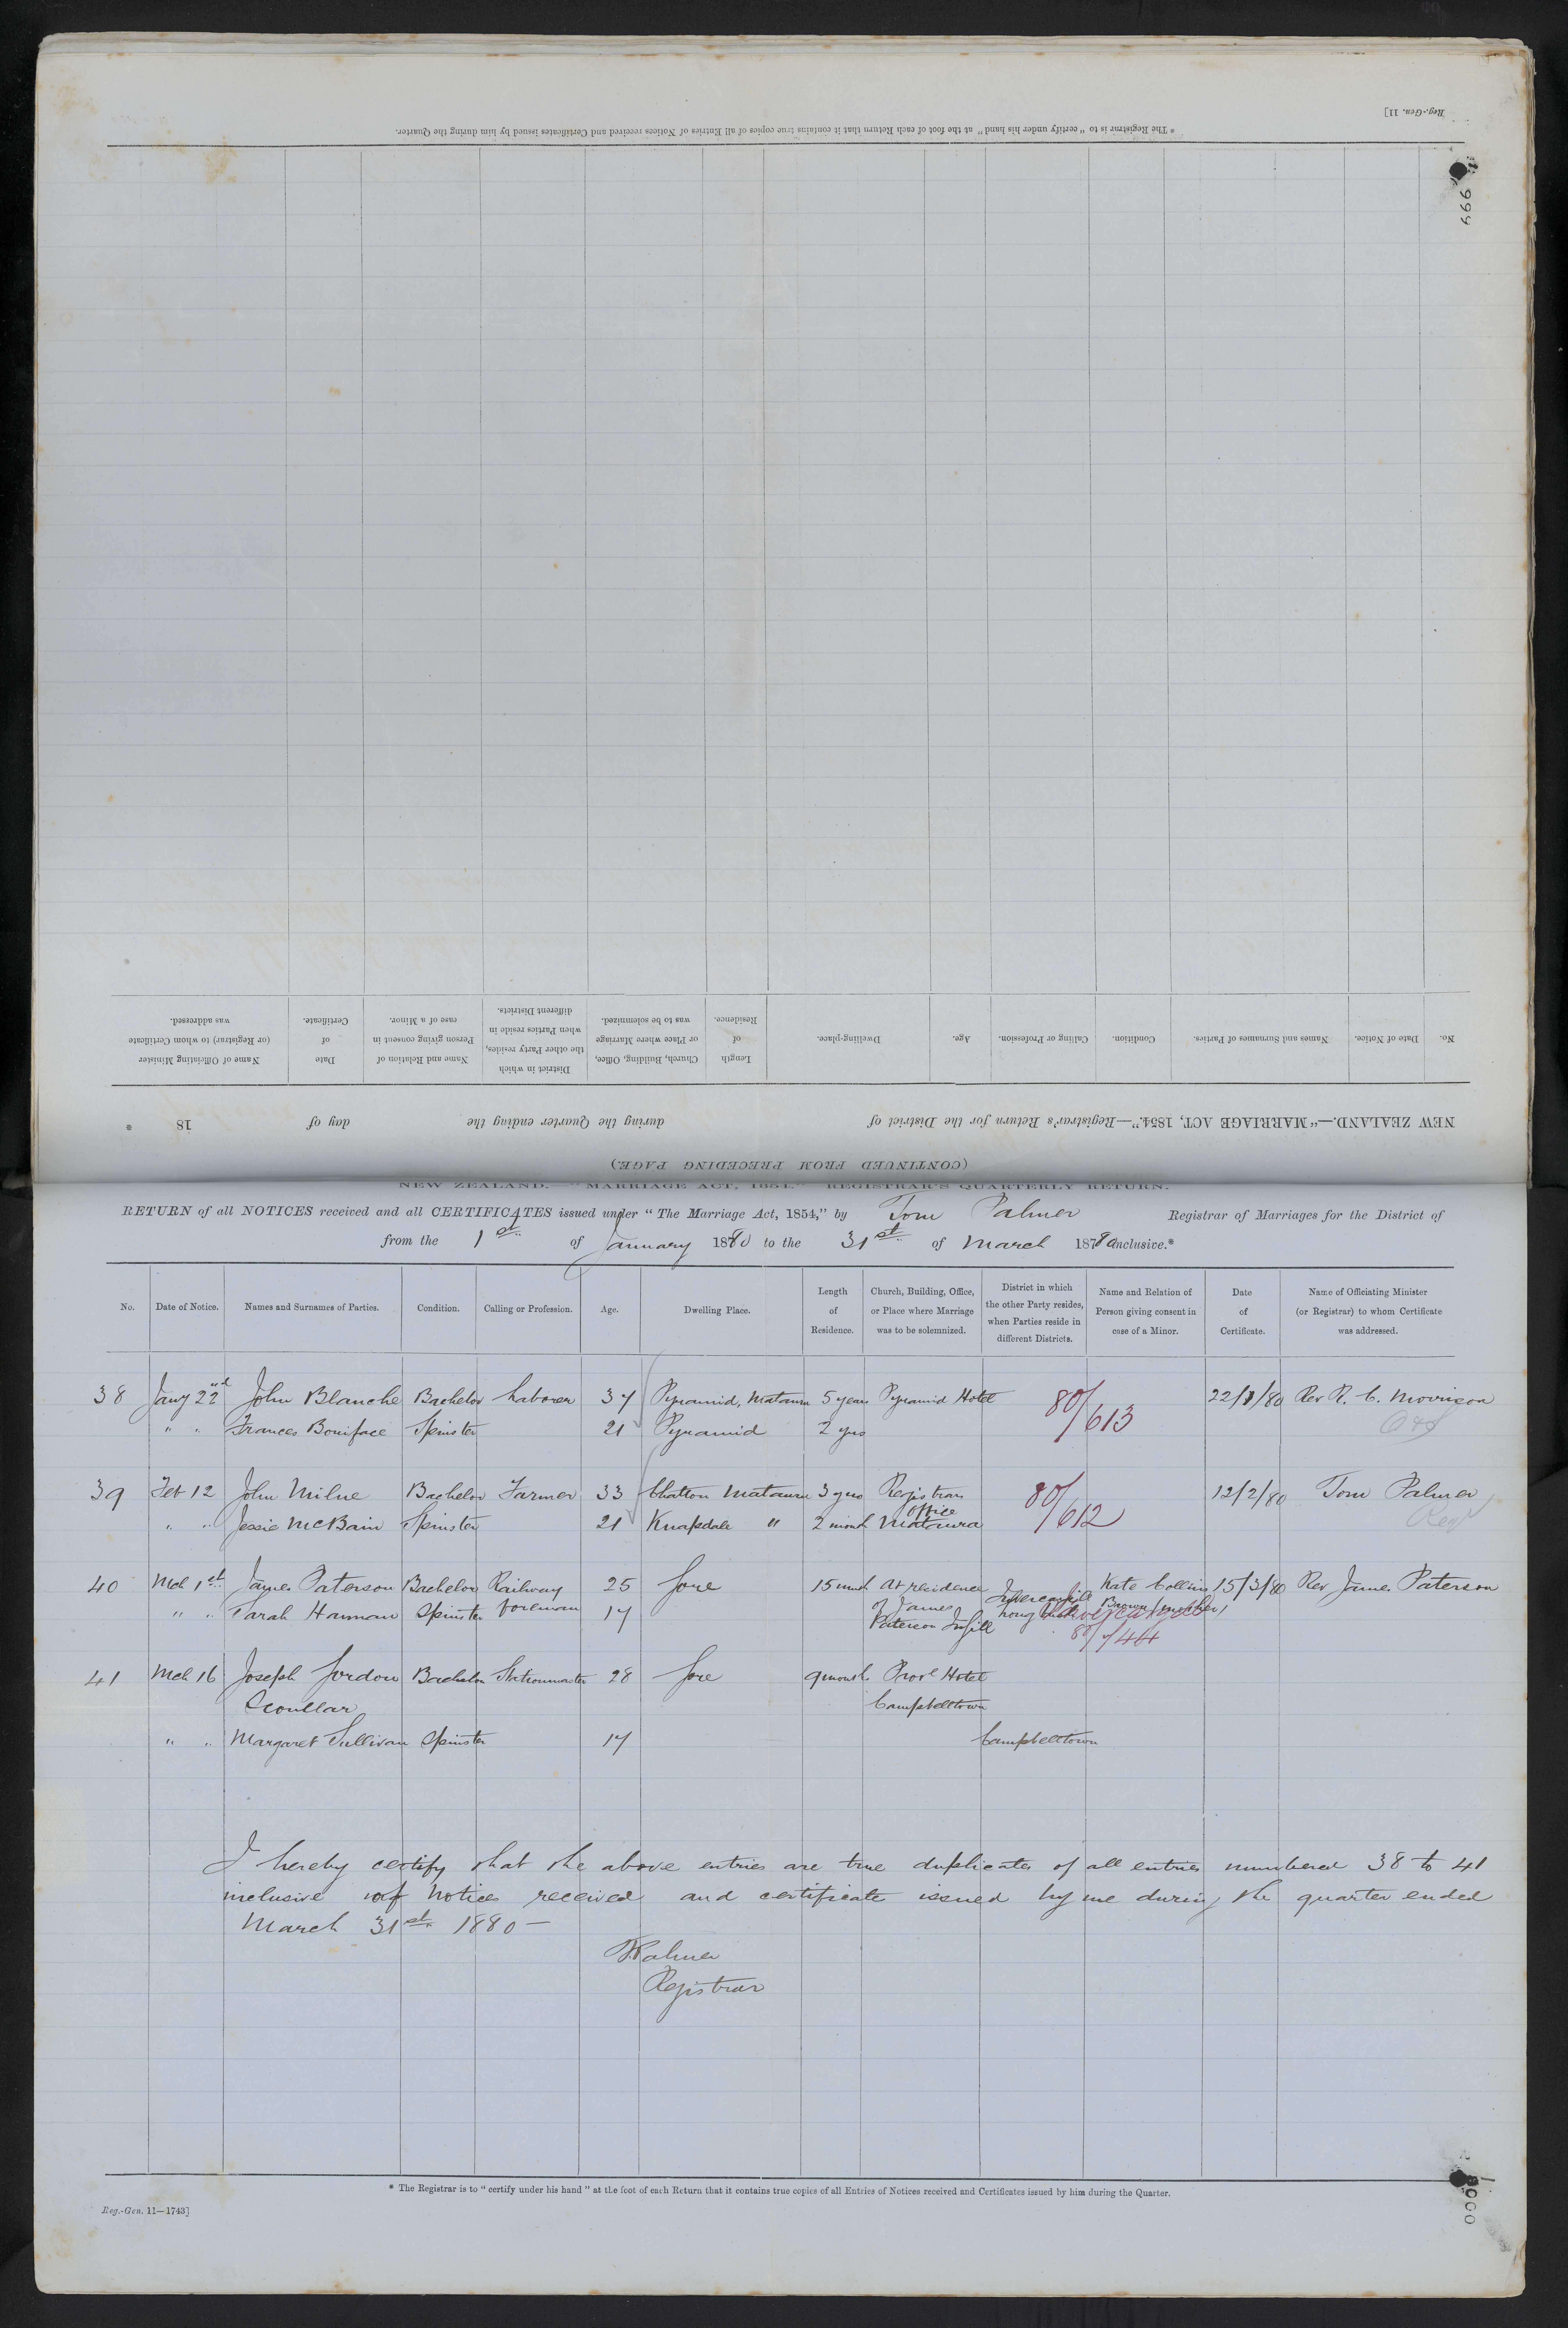 Reg.-Gen. 11]
* The Registrar is to "certify under his hand" at the foot of each Return that it contains true copies of all Entries of Notices received and Certificates issued by him during the Quarter.
999
No. Date of Notice. Names and Surnames of Parties. Condition. Calling or Profession. Age. Dwelling-place. Length of Residence. Church, Building, Office, or Place where Marriage was to be solemnized. District in which the other Party resides, when Parties reside in different Districts. Name and Relation of Person giving consent in case of a Minor. Date of Certificate. Name of Officiating Minister (or Registrar) to whom Certificate was addressed.
NEW ZEALAND.—"MARRIAGE ACT, 1854."—Registrar's Return for the District of during the Quarter ending the day of 18
(CONTINUED FROM PRECEDING PAGE.)
NEW ZEALAND.—"MARRIAGE ACT, 1854." REGISTRAR'S QUARTERLY RETURN.
RETURN of all NOTICES received and all CERTIFICATES issued under "The Marriage Act, 1854," by Tom Palmer Registrar of Marriages for the District of
from the 1st of January 1880 to the 31st of March 1880 inclusive.*
No. Date of Notice. Names and Surnames of Parties. Condition. Calling or Profession. Age. Dwelling Place. Length of Residence. Church, Building, Office, or Place where Marriage was to be solemnized. District in which the other Party resides, when Parties reside in different Districts. Name and Relation of Person giving consent in case of a Minor. Date of Certificate. Name of Officiating Minister (or Registrar) to whom Certificate was addressed.
38 Jany 22nd John Blanche Bachelor Laborer 37 Pyramid, Mataura 5 years Pyramid Hotel 80/613 22/1/80 Rev R. C. Morrison
" " Frances Boniface Spinster 21 Pyramid 2 yrs
39 Feb 12 John Milne Bachelor Farmer 33 Chatton Mataura 3 yrs Registrars office 80/612 12/2/80 Tom Palmer
" " Jessie McBain Spinster 21 Knapdale " 2 month Mataura Reg
40 Mch 1st James Paterson Bachelor Railway 25 Gore 15 month At residence Invercargill Kate Collins 15/3/80 Rev James Paterson
" " Sarah Hannan Spinster foreman 17 of James Brown (mother)
Paterson Ingill Invercargill 80/744
41 Mch 16 Joseph Gordon Bachelor Stationmaster 28 Gore 9 month Provl Hotel
Scoullar Campbelltown
" " Margaret Sullivan Spinster 17 Campbelltown
I hereby certify that the above entries are true duplicates of all entries numbered 38 to 41
inclusive of Notices received and certificate issued by me during the quarter ended
March 31st 1880 —
TPalmer
Registrar
* The Registrar is to "certify under his hand" at the foot of each Return that it contains true copies of all Entries of Notices received and Certificates issued by him during the Quarter.
Reg.-Gen. 11—1743]